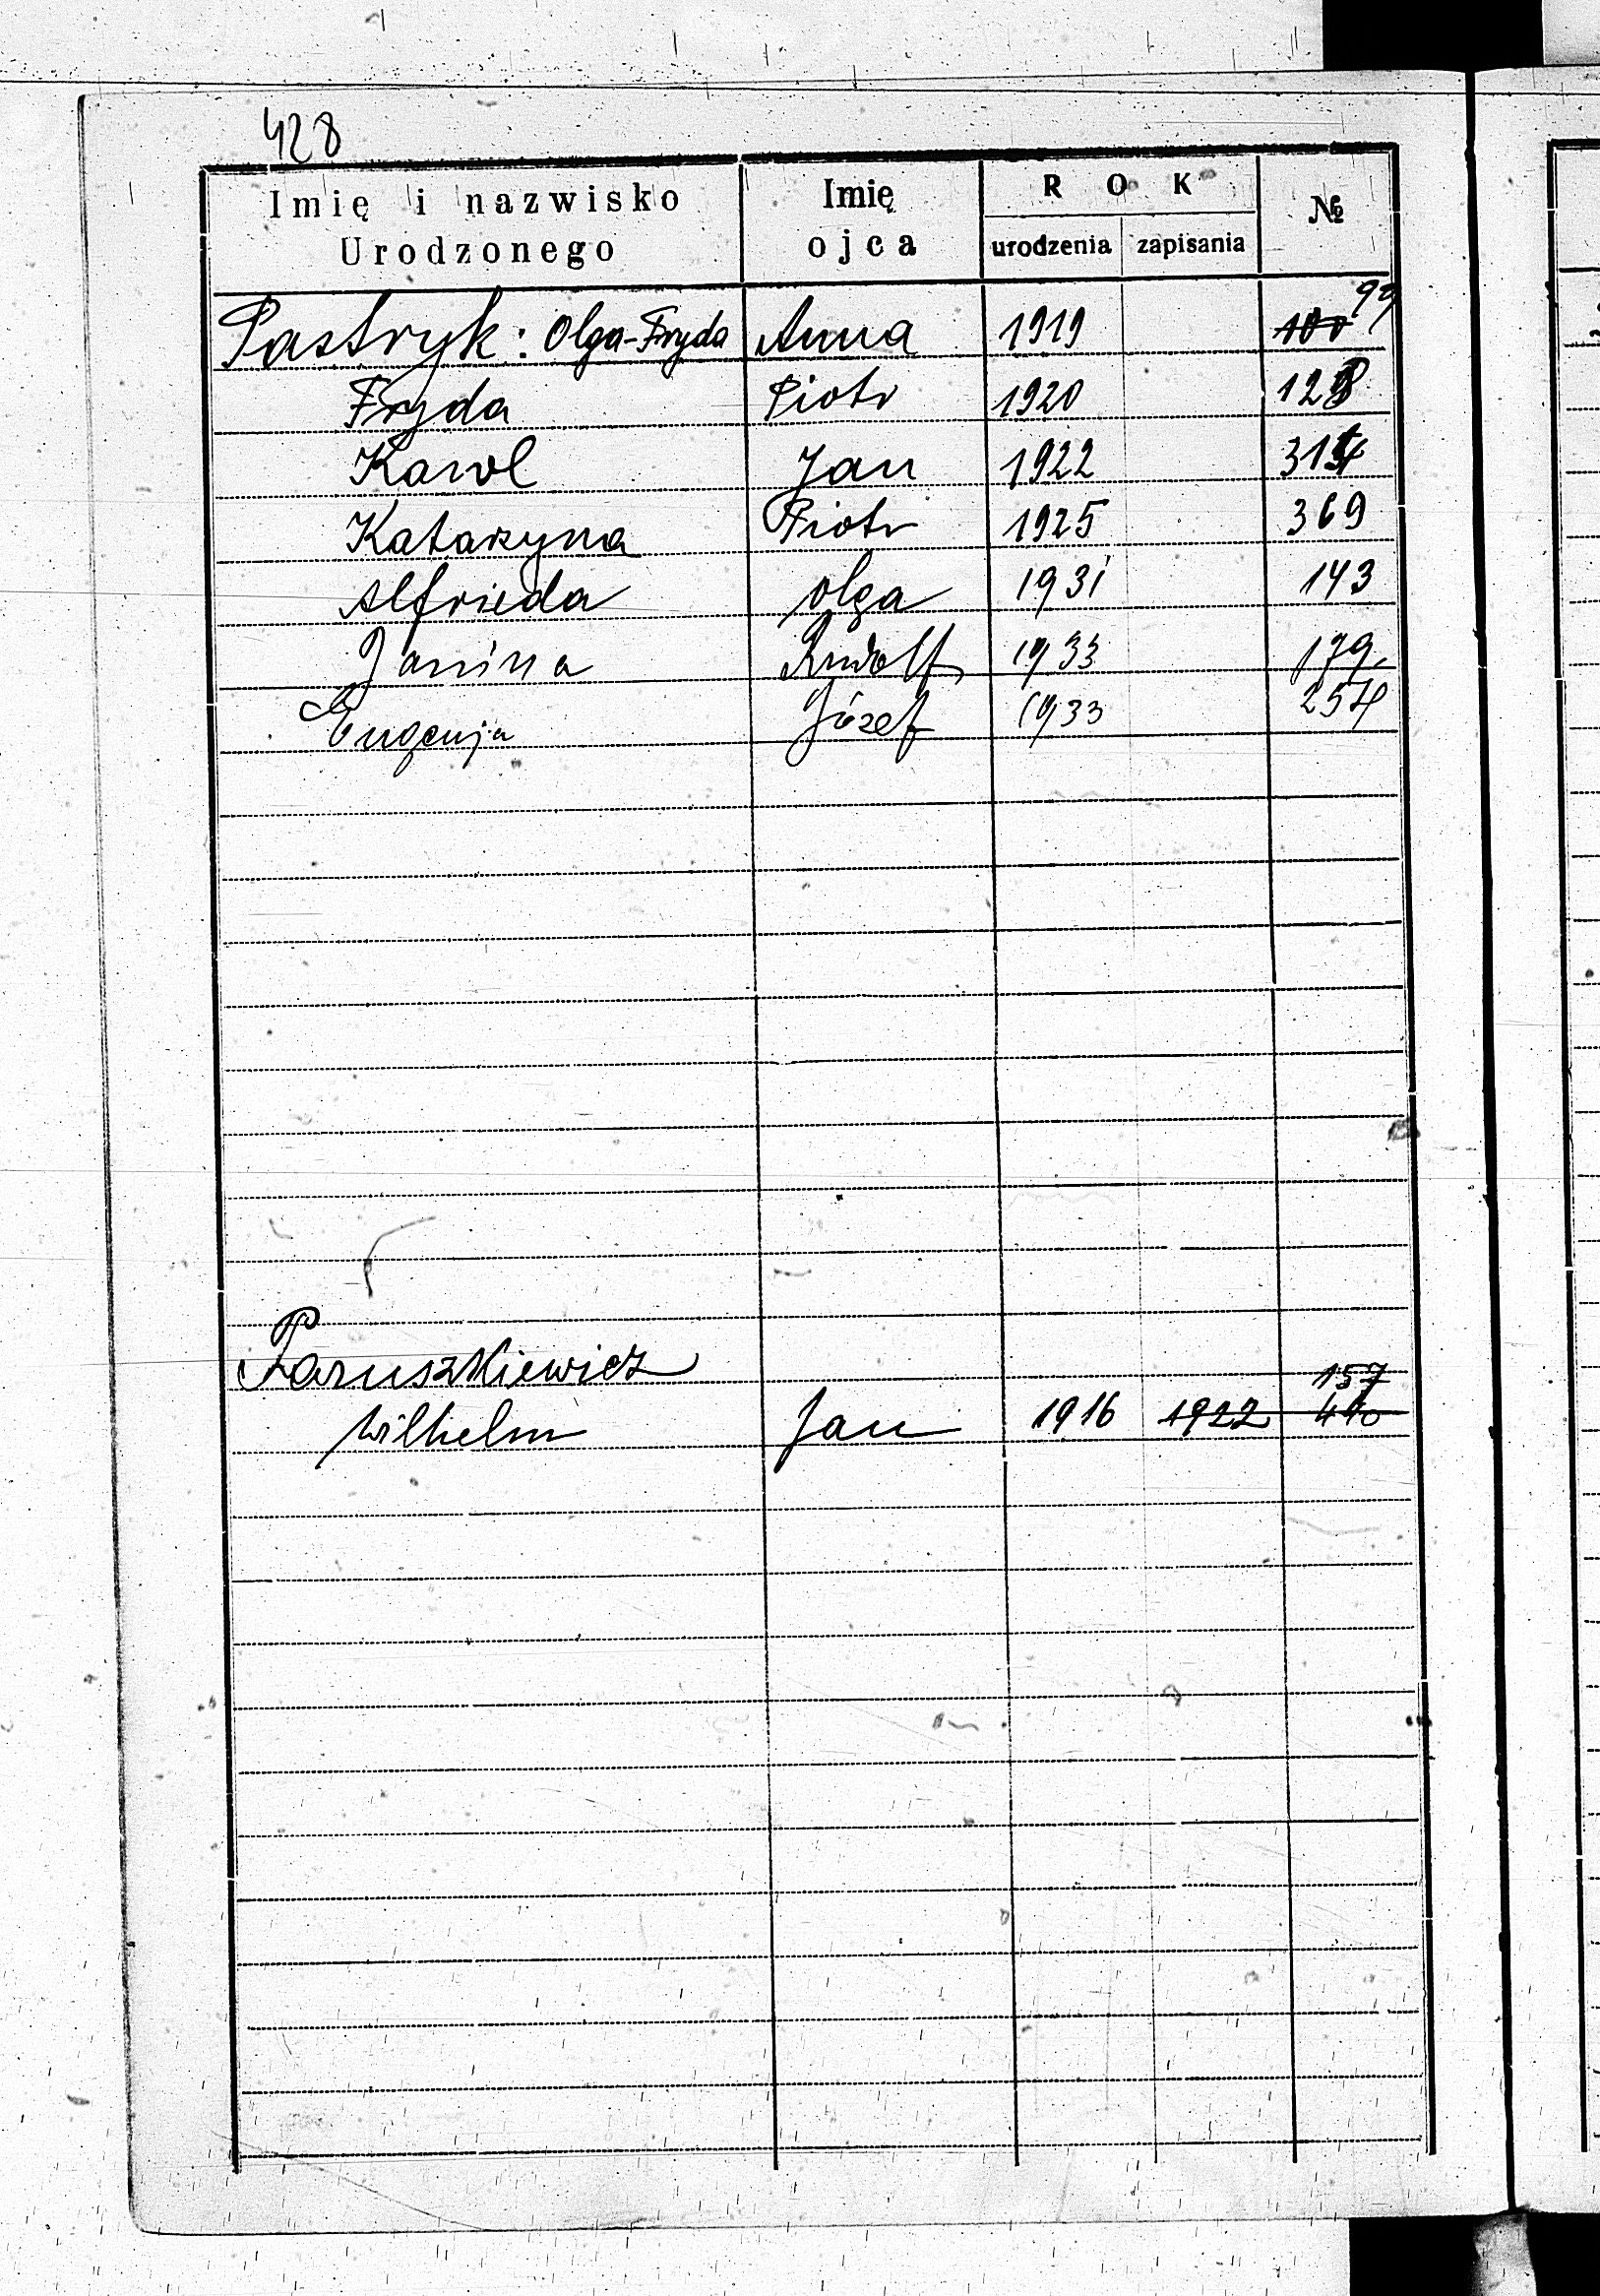 428
Imię i nazwisko Urodzonego Imię ojca ROK urodzenia zapisania №
99
Pastryk: Olga-Fryda Anna 1919 100
Fryda Piotr 1920
Karol Jan 1922 314
Katarzyna Piotr 1925 369
Alfrieda Olga 1931 143
Janina Rudolf 1933 179
Eugenja Józef 1933 254
Paruszkiewicz 157
Wilhelm Jan 1916 1922